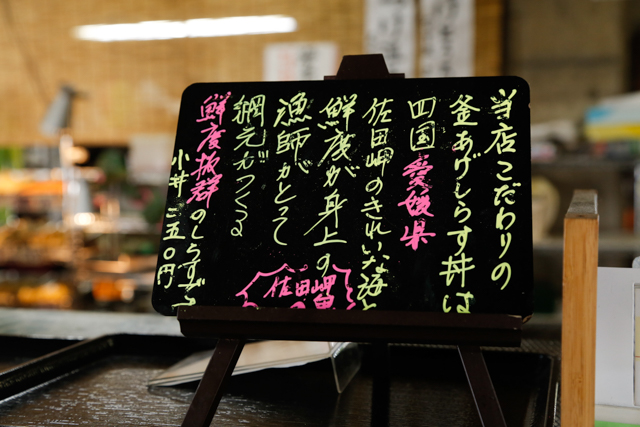 当店こだわりの
釜あげしらす丼は
四国愛媛県
佐田岬のきれいな海と
鮮度が身上の
漁師がとって
網元がつくる
鮮度抜群のしらすです
小丼三五〇円
佐田岬